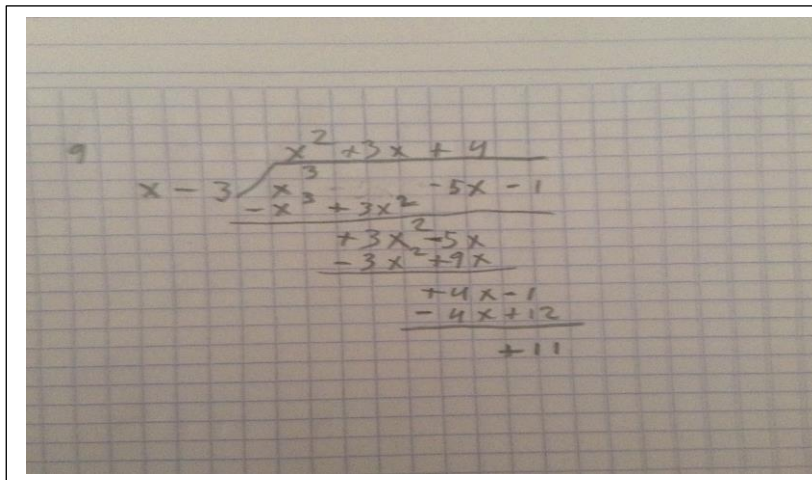 9
x² + 3x + 4
x - 3 x³ - 5x - 1
- x³ + 3x²
+ 3x² - 5x
- 3x² + 9x
+ 4x - 1
- 4x + 12
+ 11